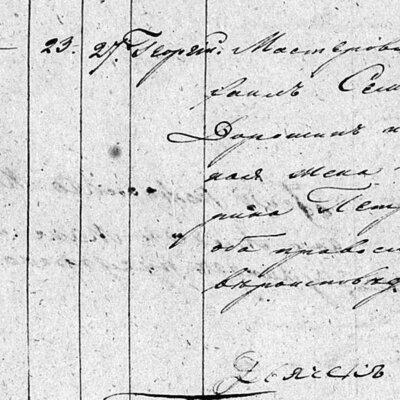 23. 27. Георгій. Мастерови
каилъ Сем
Дорошин
ная жена
рина Пет
оба правосл
вѣроисповѣд
Дьячекъ